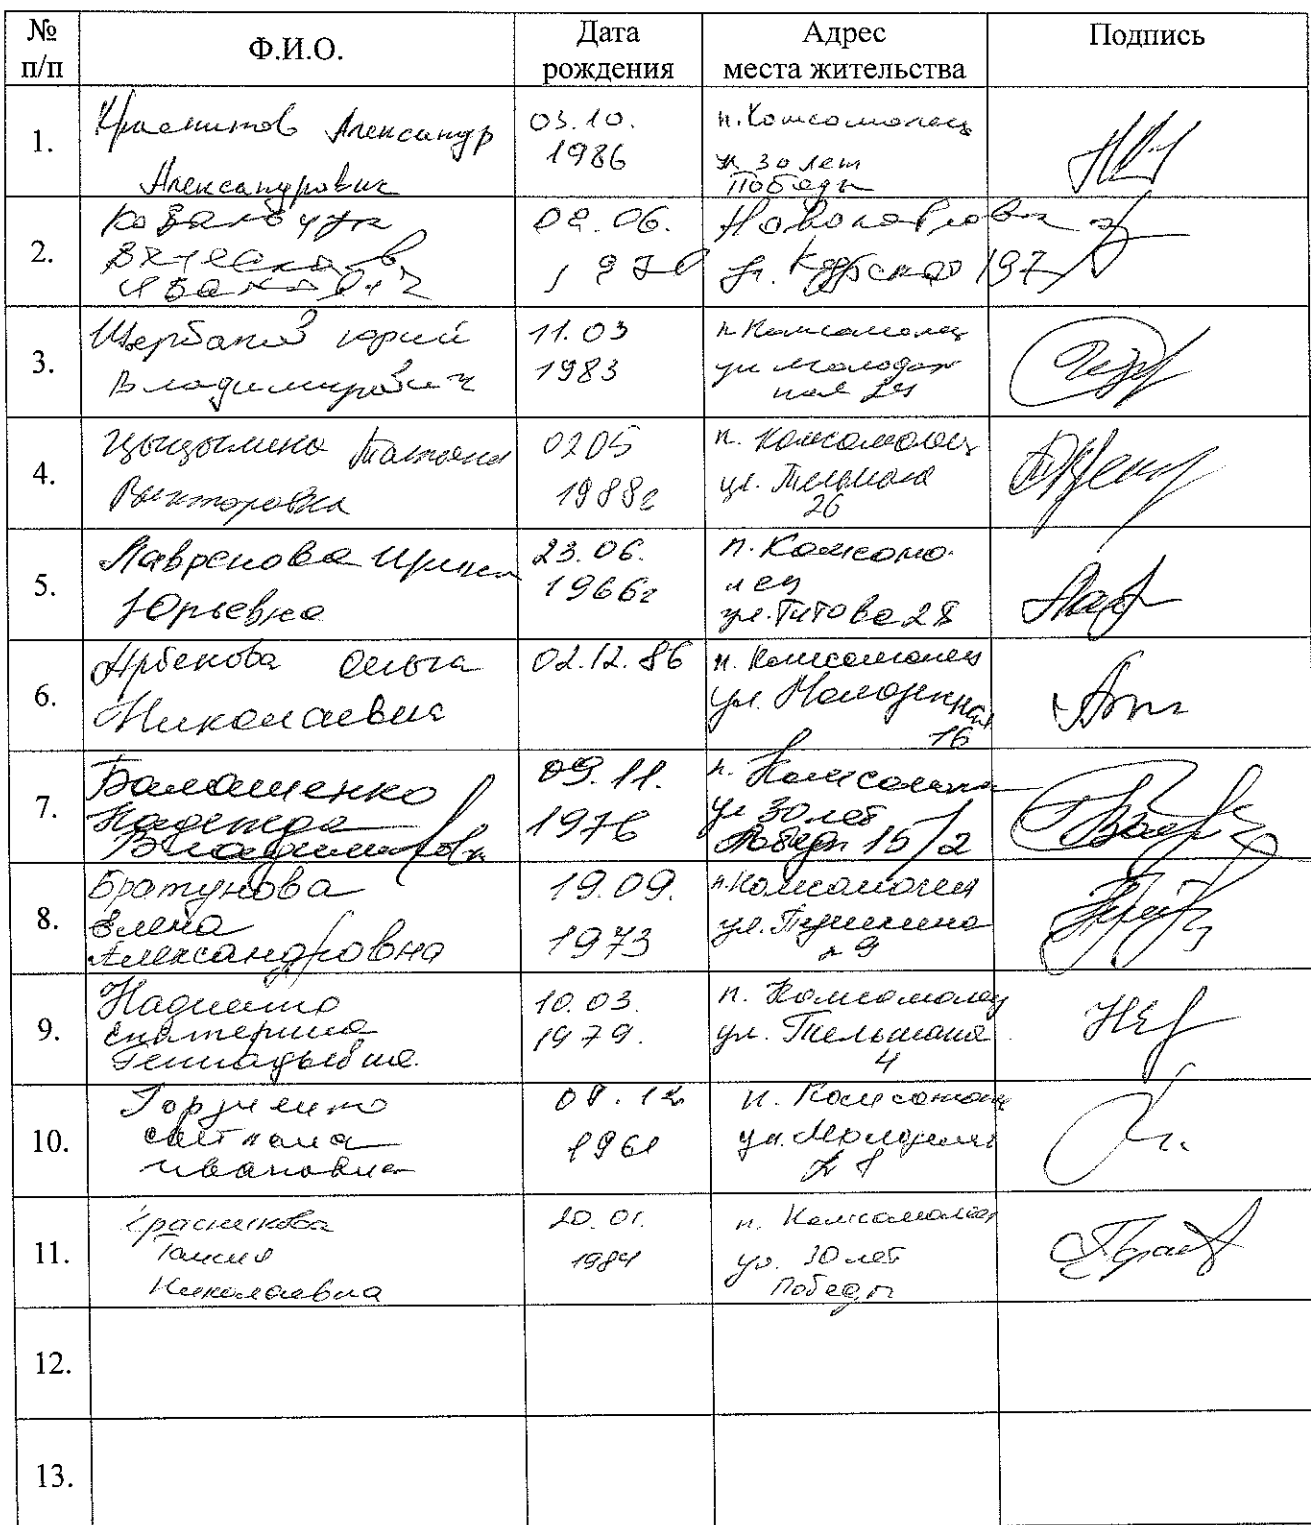 № п/п
Ф.И.О.
Дата рождения
Адрес места жительства
Подпись
1.
Александр
Александрович
03.10.
1986
п. Комсомолец
30 лет
Победы
2.
Ковальчук
Иванович
06.
Новопавловка
197
3.
Щербаков Юрий
Владимирович
11.03
1983
п Комсомолец
ул Молодеж
ная
4.
Татьяна
Викторовна
0205
1988г
п. Комсомолец
ул. Тельмана
26
5.
Лавренова Ирина
Юрьевна
23.06.
1966г
п. Комсомо-
лец
ул. Титова 28
6.
Арбенова Ольга
Николаевна
02.12.86
п. Комсомолец
ул. Молодежная
16
7.
Балашенко
Надежда
Владимировна
09.11.
1976
п. Комсомолец
ул 30 лет
Победы 15/2
8.
Братунова
Елена
Александровна
19.09.
1973
п. Комсомолец
ул. Пушкина
9
9.
Екатерина
Геннадьевна.
10.03.
1979.
п. Комсомолец
ул. Тельмана
4
10.
Светлана
Ивановна
1961
п. Комсомолец
ул. Молодежная
11.
Таисия
Николаевна
20.01.
1984
п. Комсомолец
ул. 30 лет
Победы
12.
13.